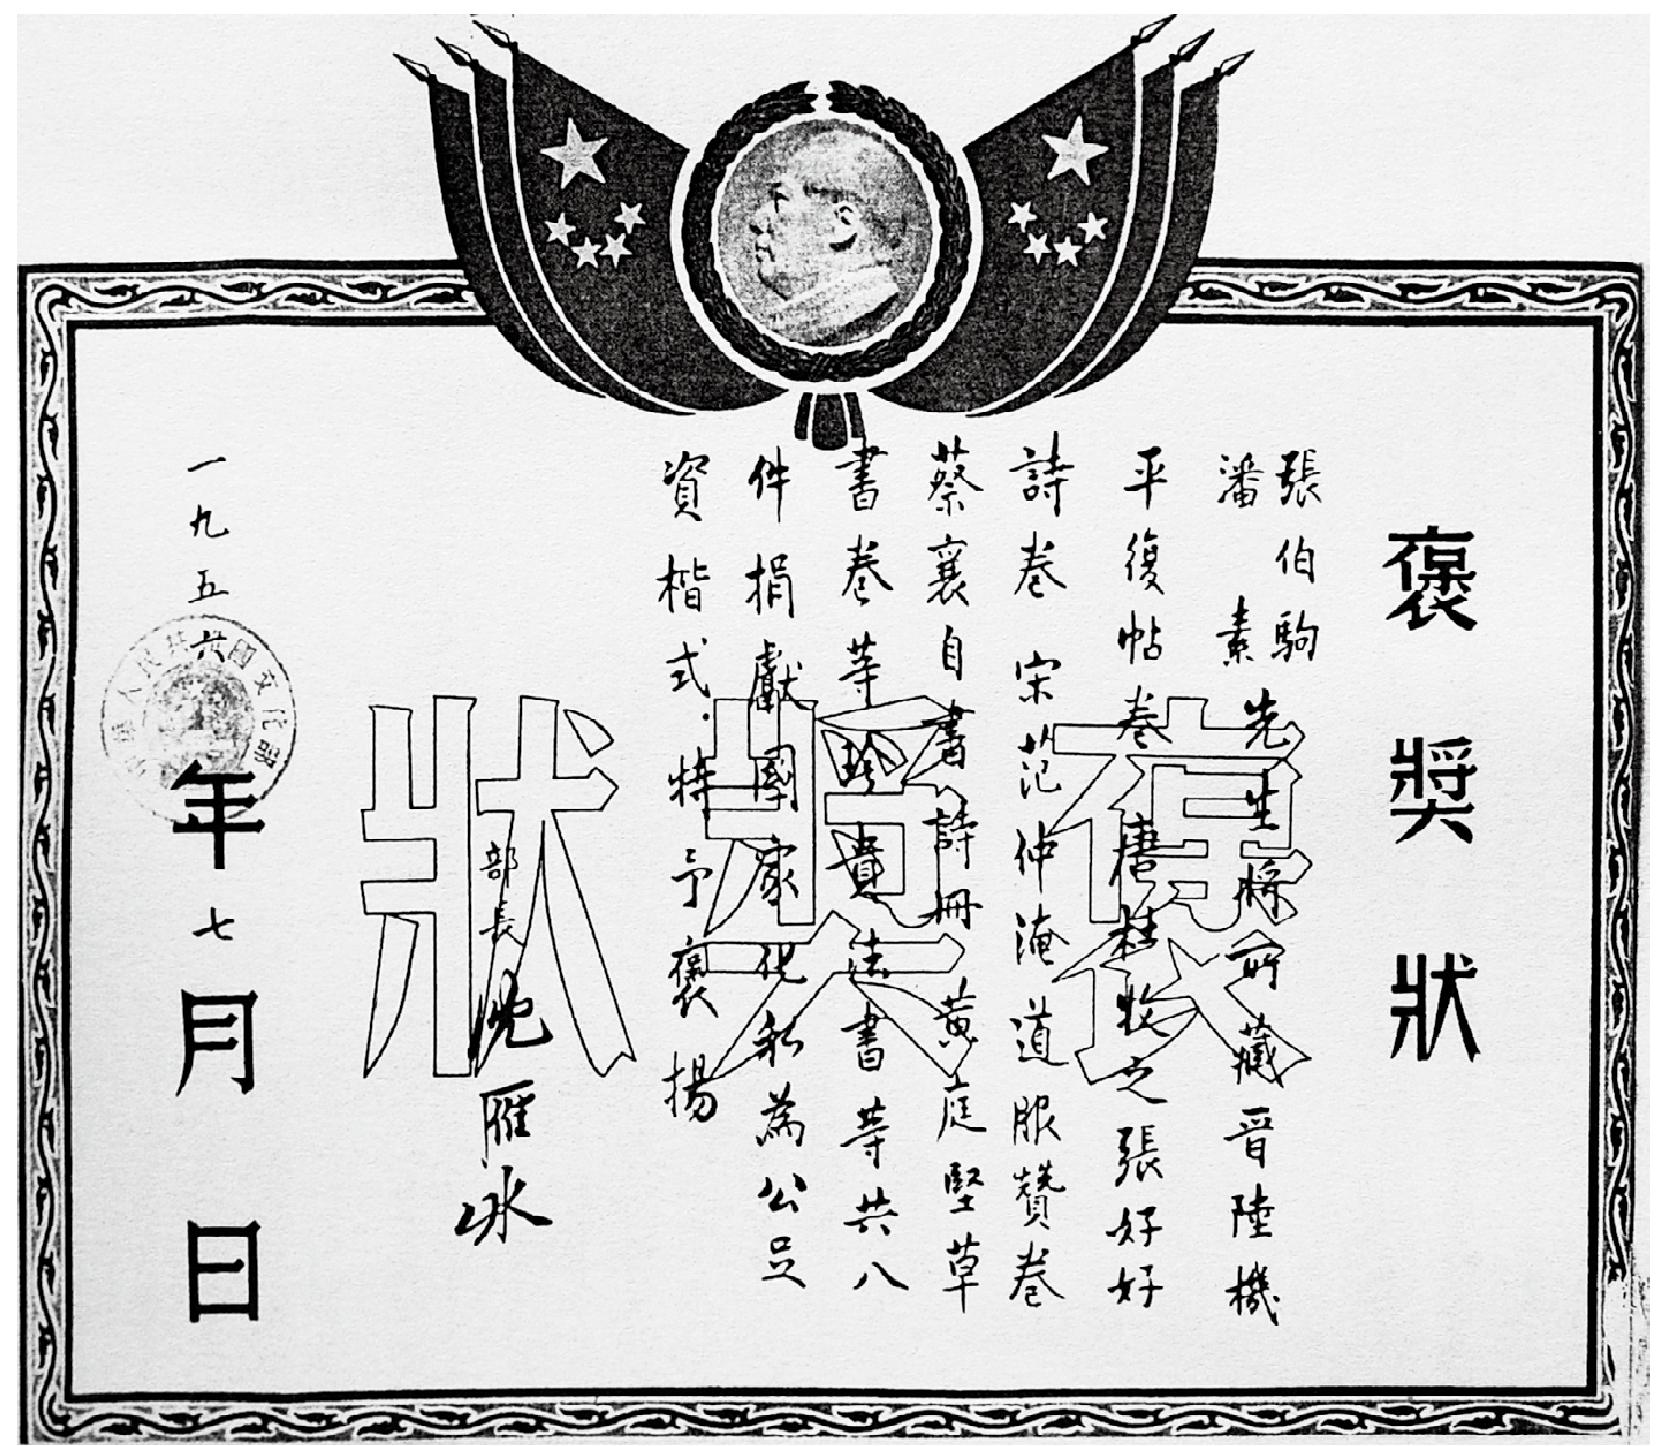 褒奬狀
張伯駒
潘素
先生將所藏晉陸機
平復帖卷 唐杜牧之張好好
詩卷 宋范仲淹道服贊卷
蔡襄自書詩冊 黃庭堅草
書卷等珍貴法書等共八
件捐獻國家化私為公足
資楷式.特予褒揚
褒奬狀
部長 沈雁冰
一九五六年七月 日
中華人民共和國文化部